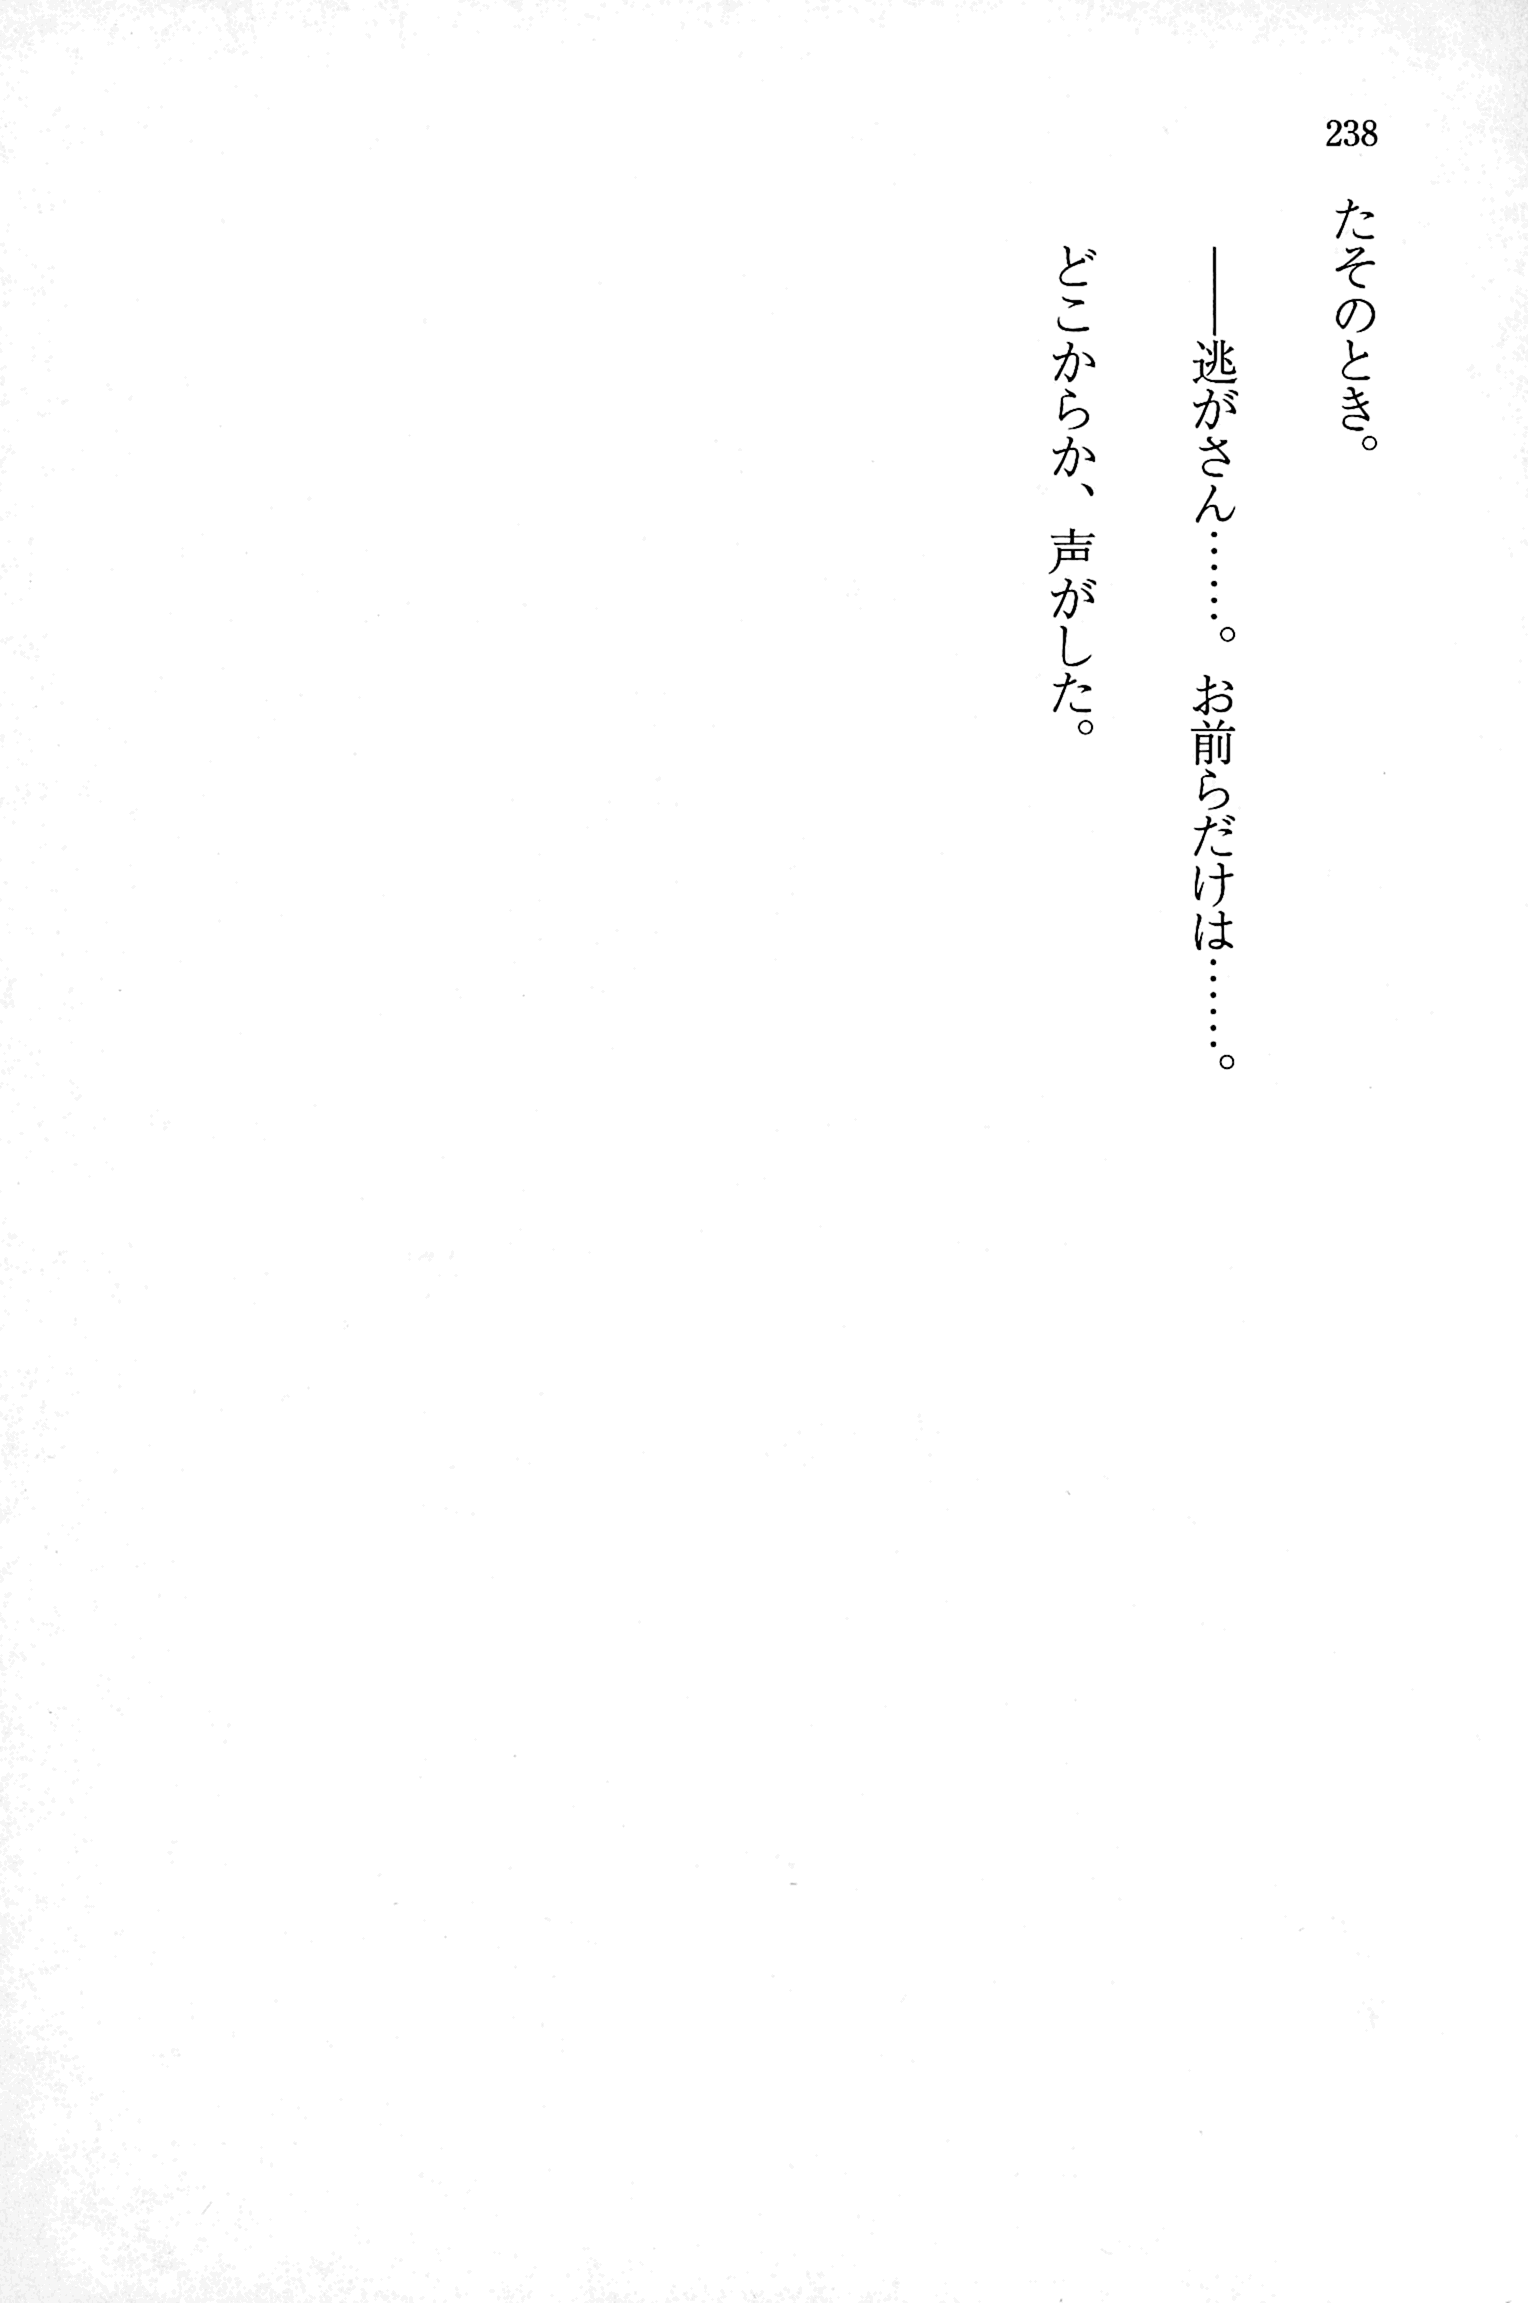 238
たそのとき。
――逃がさん……。お前らだけは……。
どこからか、声がした。